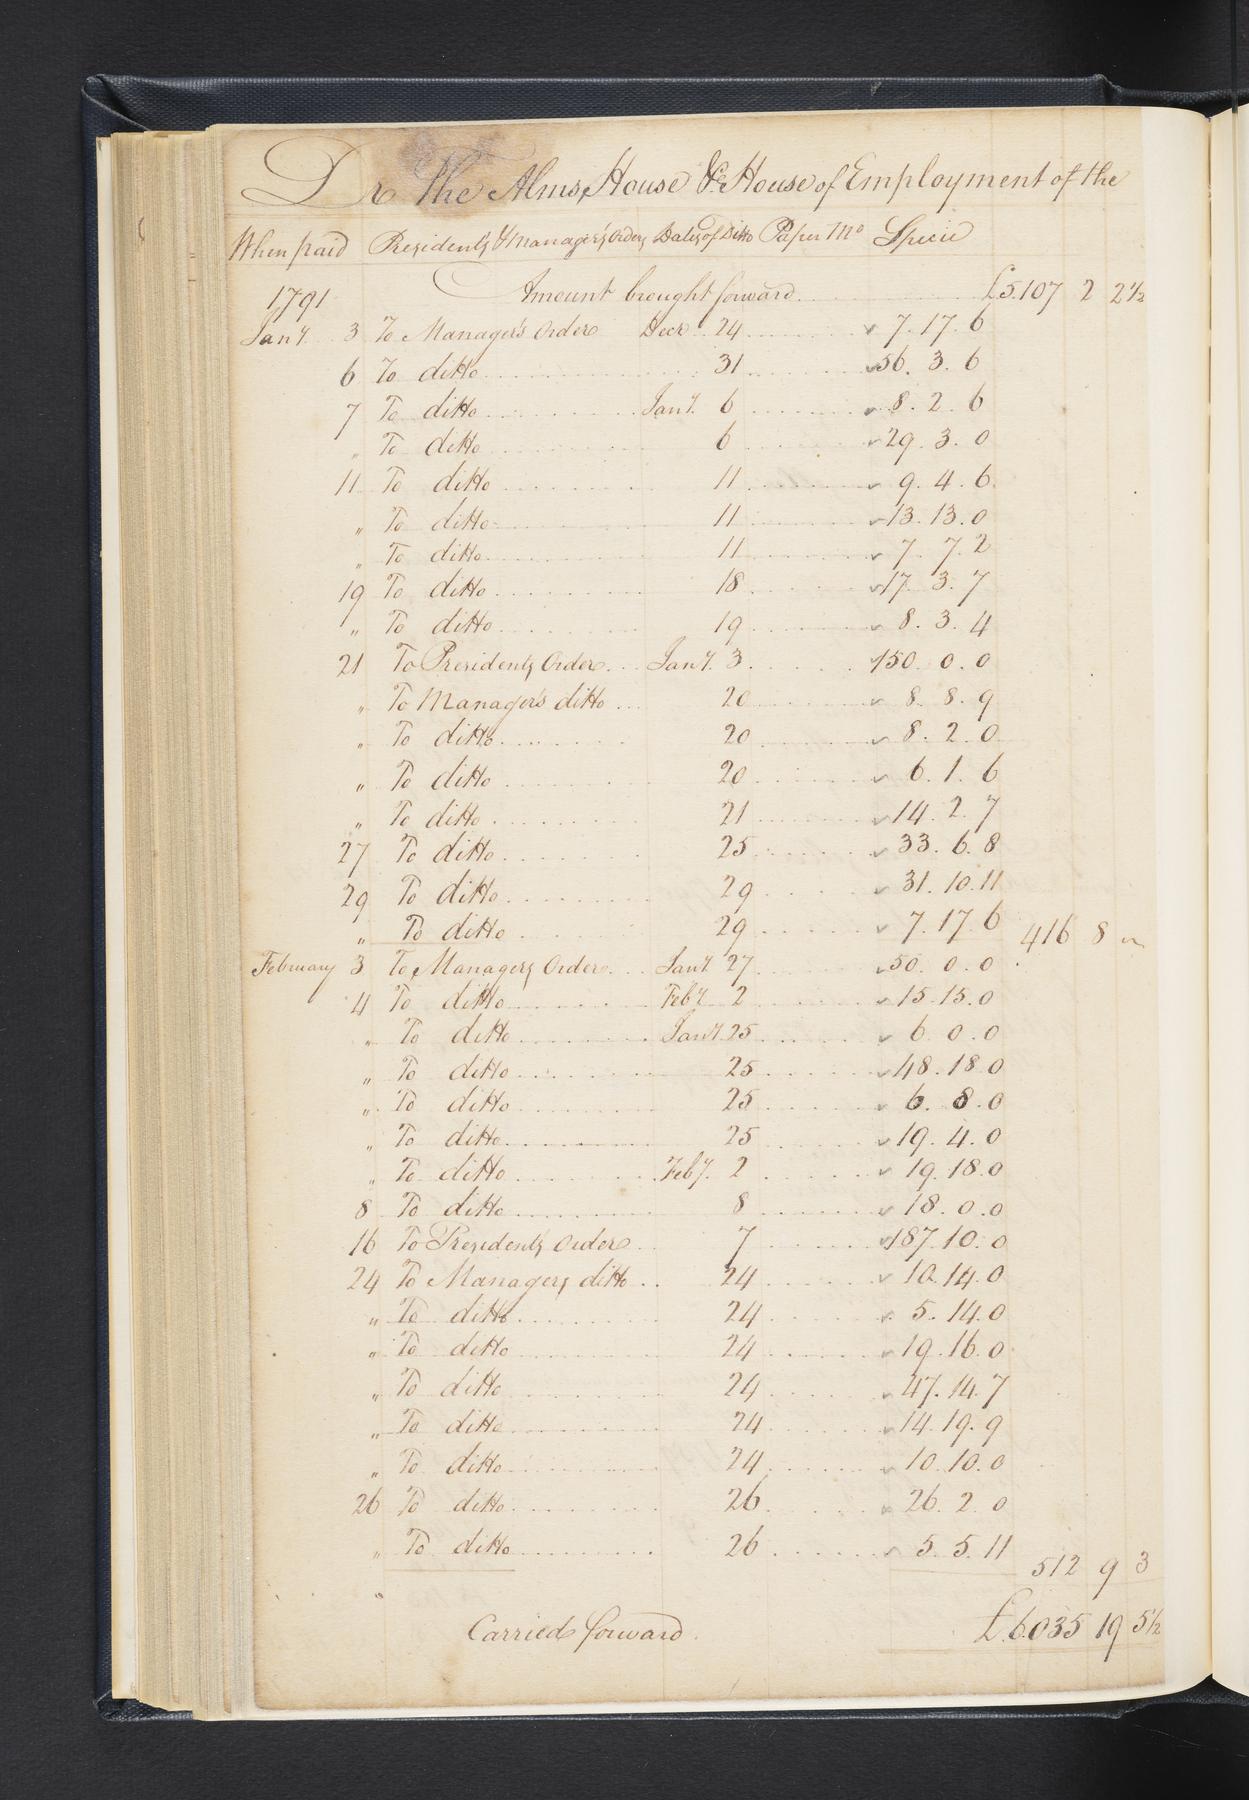 Dr The Alms House & House of Employment of the
When paid Presidents & Manager's Orders Dates of Ditto Paper Mo Specie
1791 Amount brought forward £5.107 2 2½
Jany. 3 To Manager's Order Decr. 24 7.17.6
6 To ditto 31 56.3.6
7 To ditto Jany. 6 8.2.6
" To ditto 6 29.3.0
11 To ditto 11 9.4.6
" To ditto 11 13.13.0
" To ditto 11 7.7.2
19 To ditto 18 17.3.7
" To ditto 19 8.3.4
21 To Presidents Order Jany. 3 150.0.0
" To Manager's ditto 20 8.8.9
" To ditto 20 8.2.0
" To ditto 20 6.1.6
" To ditto 21 14.2.7
27 To ditto 25 33.6.8
29 To ditto 29 31.10.11
" To ditto 29 7.17.6 416 8 "
February 3 To Managers Order Jany. 27 50.0.0
4 To ditto Feby. 2 15.15.0
" To ditto Jany. 25 6.0.0
" To ditto 25 48.18.0
" To ditto 25 6.8.0
" To ditto 25 19.4.0
" To ditto Feby. 2 19.18.0
8 To ditto 8 18.0.0
16 To Presidents Order 7 187.10.0
24 To Managers ditto 24 10.14.0
" To ditto 24 5.14.0
" To ditto 24 19.16.0
" To ditto 24 47.14.7
" To ditto 24 14.19.9
" To ditto 24 10.10.0
26 To ditto 26 26.2.0
" To ditto 26 5.5.11
512 9 3
"
Carried forward £6.035 19 5½